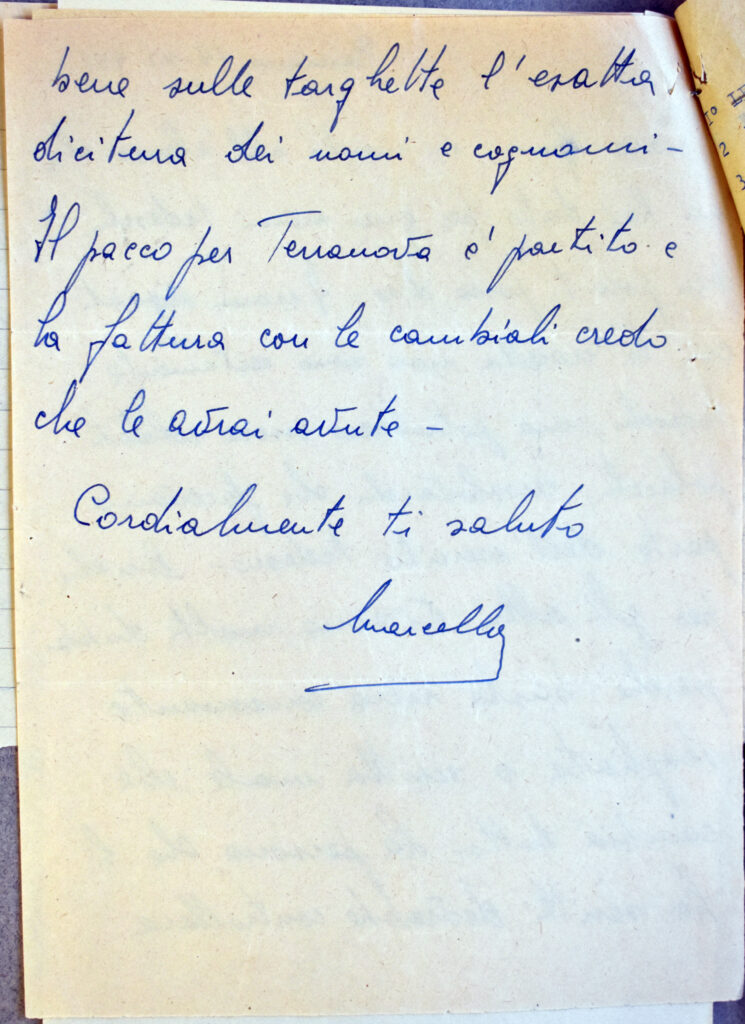 bene sulle targhette l'esatta
dicitura dei nomi e cognomi -
Il pacco per Terranova e' partito e
la fattura con le cambiali credo
che le avrai avute -
Cordialmente ti saluto
Marcella
2
3